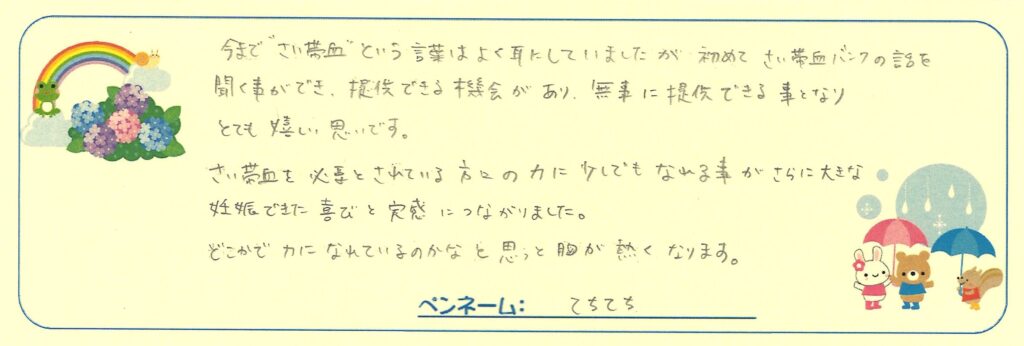 今まで"さい帯血"という言葉はよく耳にしていましたが初めてさい帯血バンクの話を
聞く事ができ、提供できる機会があり、無事に提供できる事となり
とても嬉しい思いです。
さい帯血を必要とされている方々の力に少しでもなれる事がさらに大きな
妊娠できた喜びと実感につながりました。
どこかで力になれているのかなと思うと胸が熱くなります。
ペンネーム: てちてち